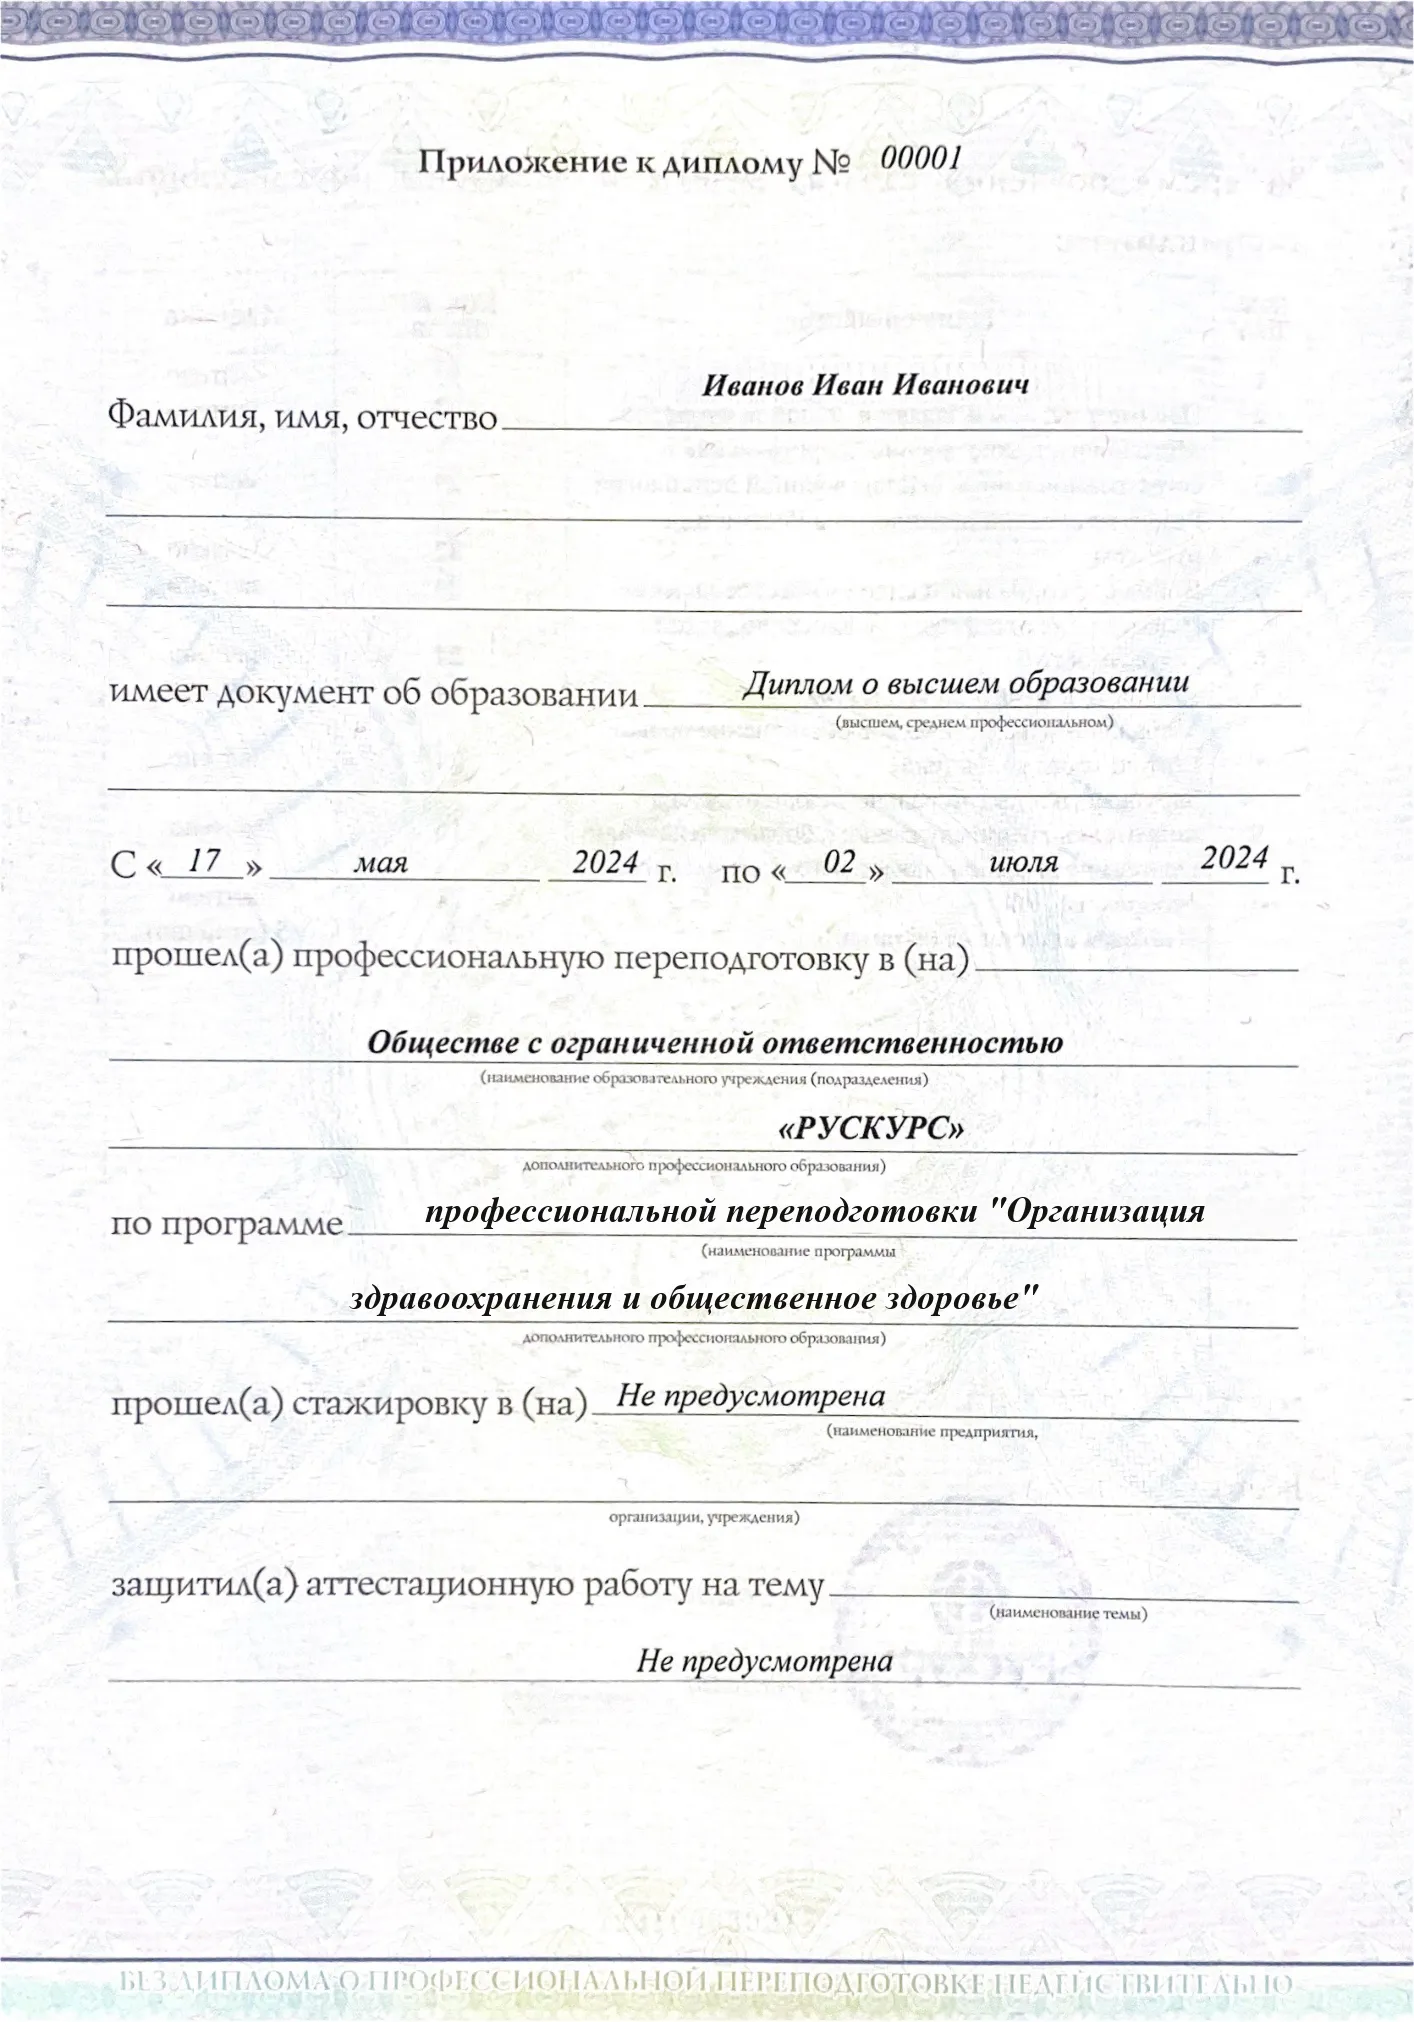 Приложение к диплому № 00001
Иванов Иван Иванович
Фамилия, имя, отчество
имеет документ об образовании Диплом о высшем образовании
(высшем, среднем профессиональном)
С « 17 » мая 2024 г. по « 02 » июля 2024 г.
прошел(а) профессиональную переподготовку в (на)
Обществе с ограниченной ответственностью
(наименование образовательного учреждения (подразделения)
«РУСКУРС»
дополнительного профессионального образования)
по программе профессиональной переподготовки "Организация
(наименование программы
здравоохранения и общественное здоровье"
дополнительного профессионального образования)
прошел(а) стажировку в (на) Не предусмотрена
(наименование предприятия,
организации, учреждения)
защитил(а) аттестационную работу на тему
(наименование темы)
Не предусмотрена
БЕЗ ДИПЛОМА О ПРОФЕССИОНАЛЬНОЙ ПЕРЕПОДГОТОВКЕ НЕДЕЙСТВИТЕЛЬНО